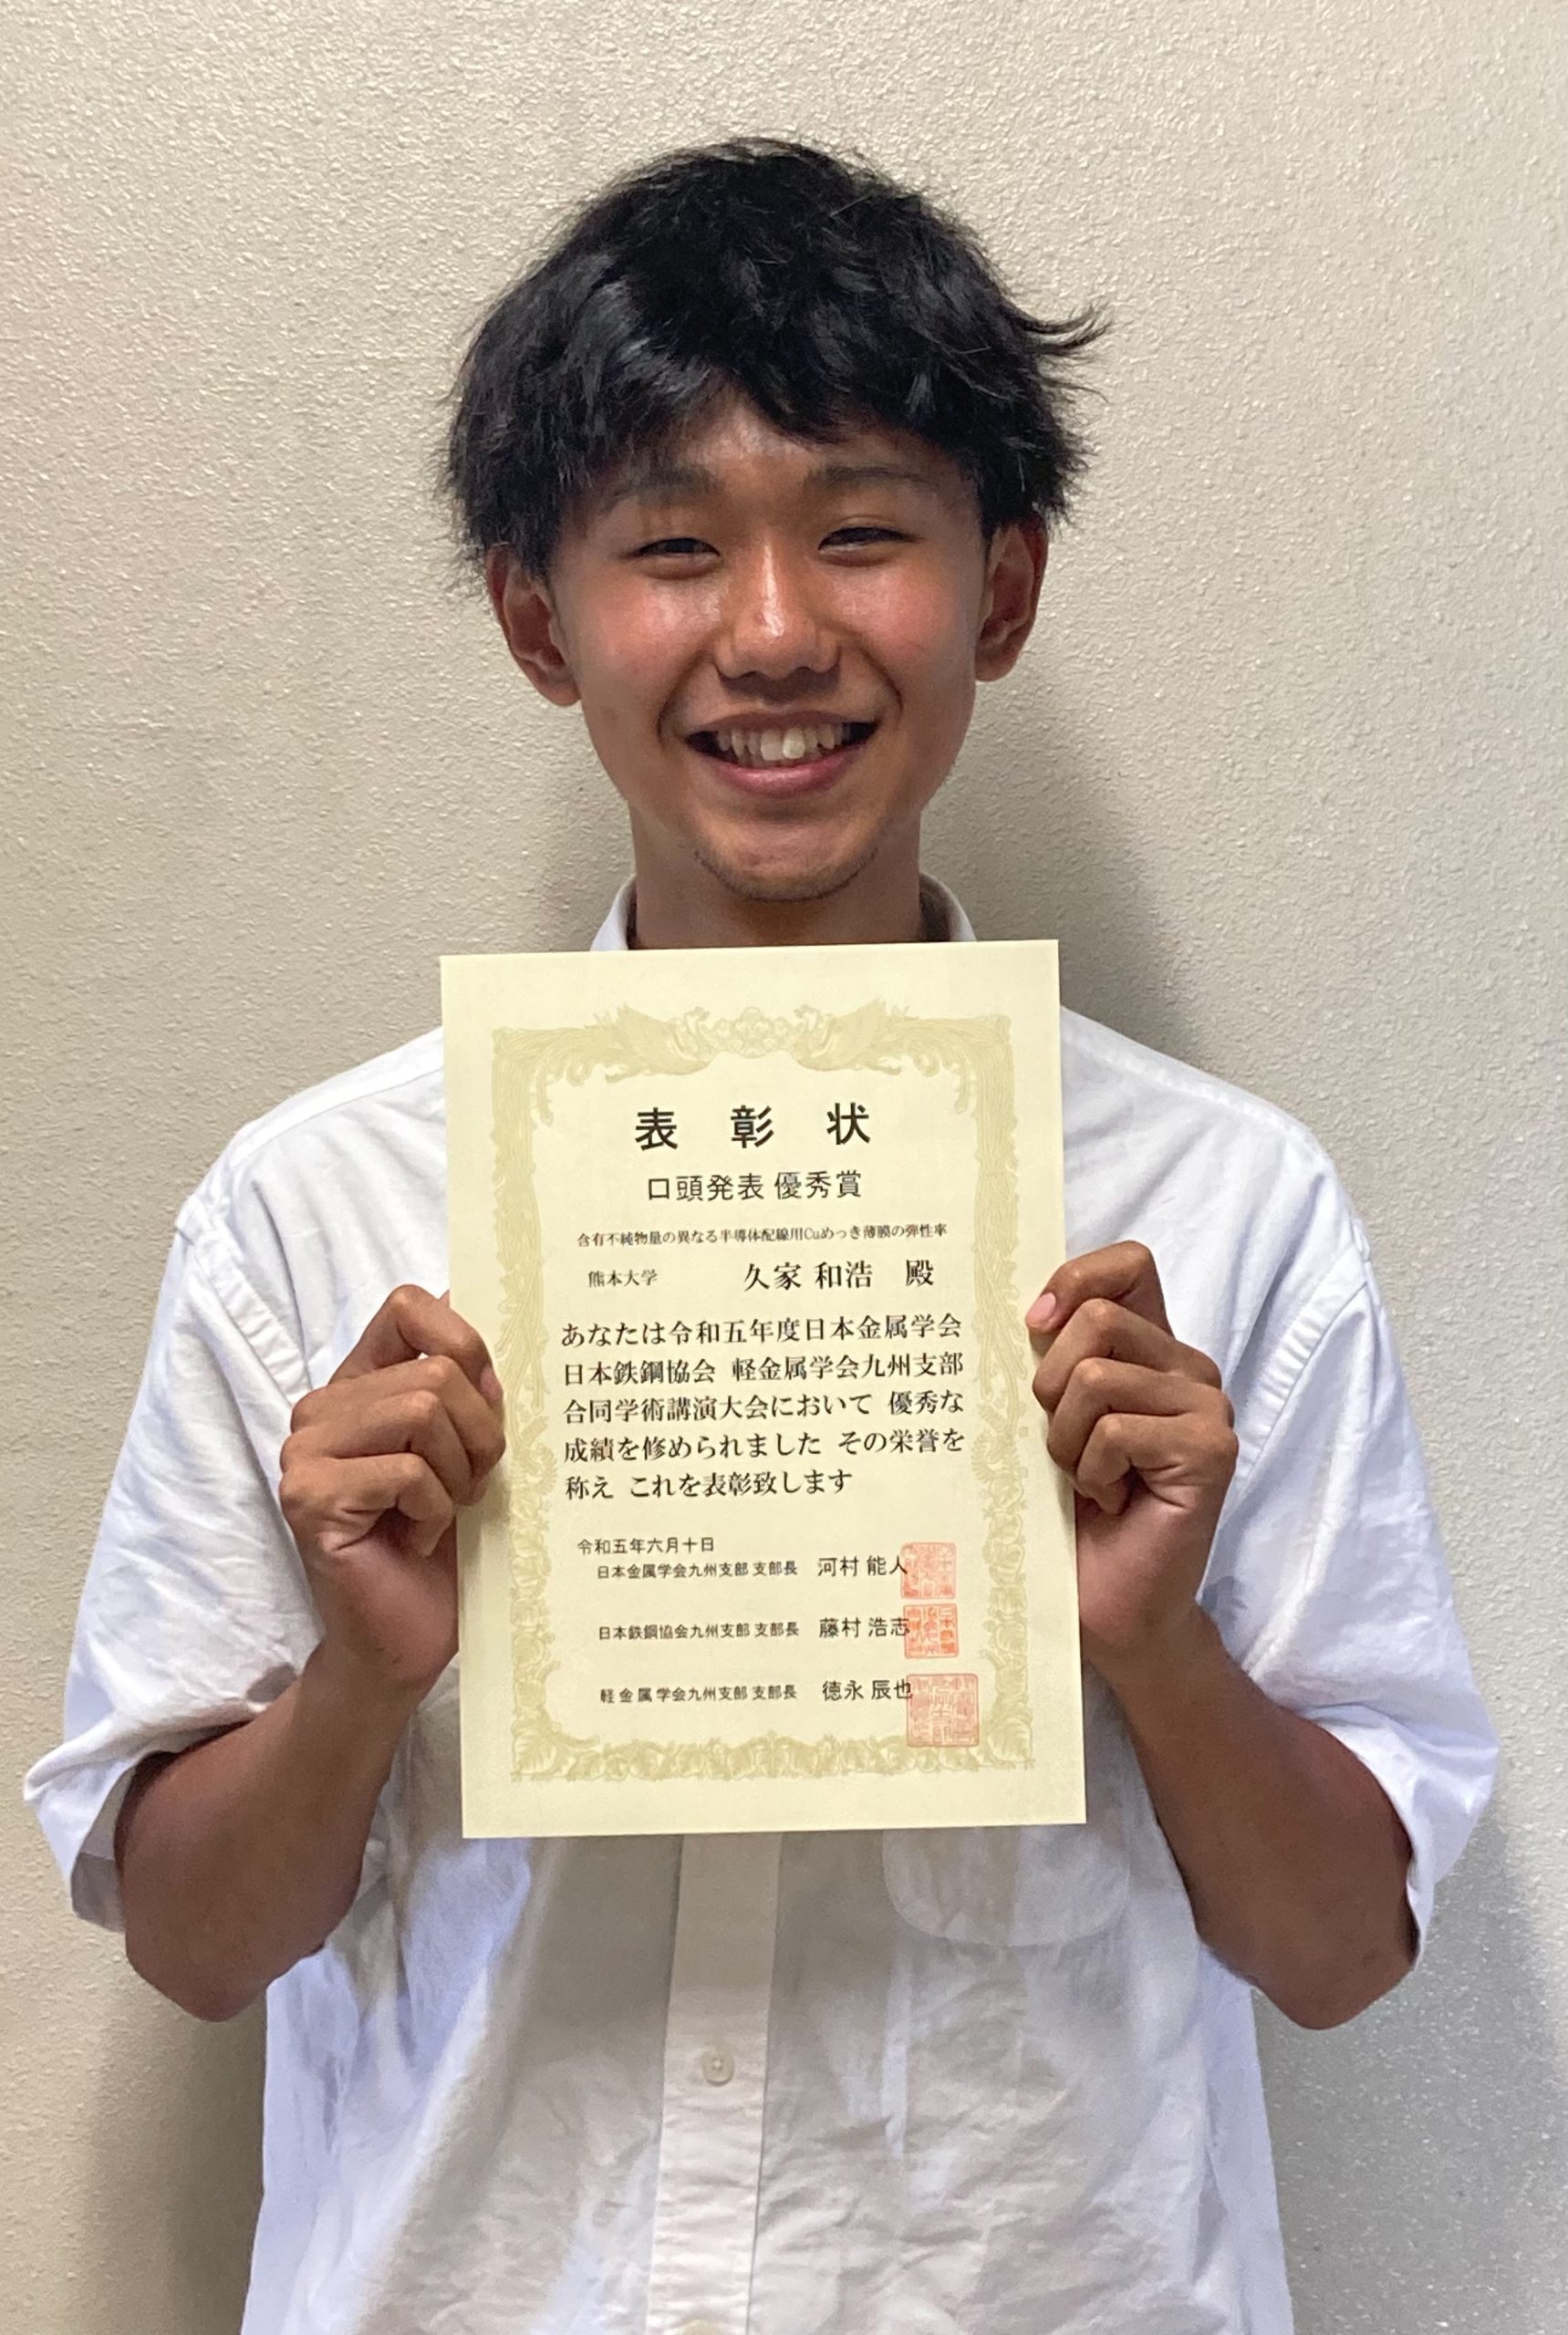 表彰状
口頭発表 優秀賞
含有不純物量の異なる半導体配線用Cuめっき薄膜の弾性率
熊本大学 久家 和浩 殿
あなたは令和五年度日本金属学会
日本鉄鋼協会 軽金属学会九州支部
合同学術講演大会において 優秀な
成績を修められました その栄誉を
称え これを表彰致します
令和五年六月十日
日本金属学会九州支部 支部長 河村 能人
日本鉄鋼協会九州支部 支部長 藤村 浩志
軽金属学会九州支部 支部長 徳永 辰也